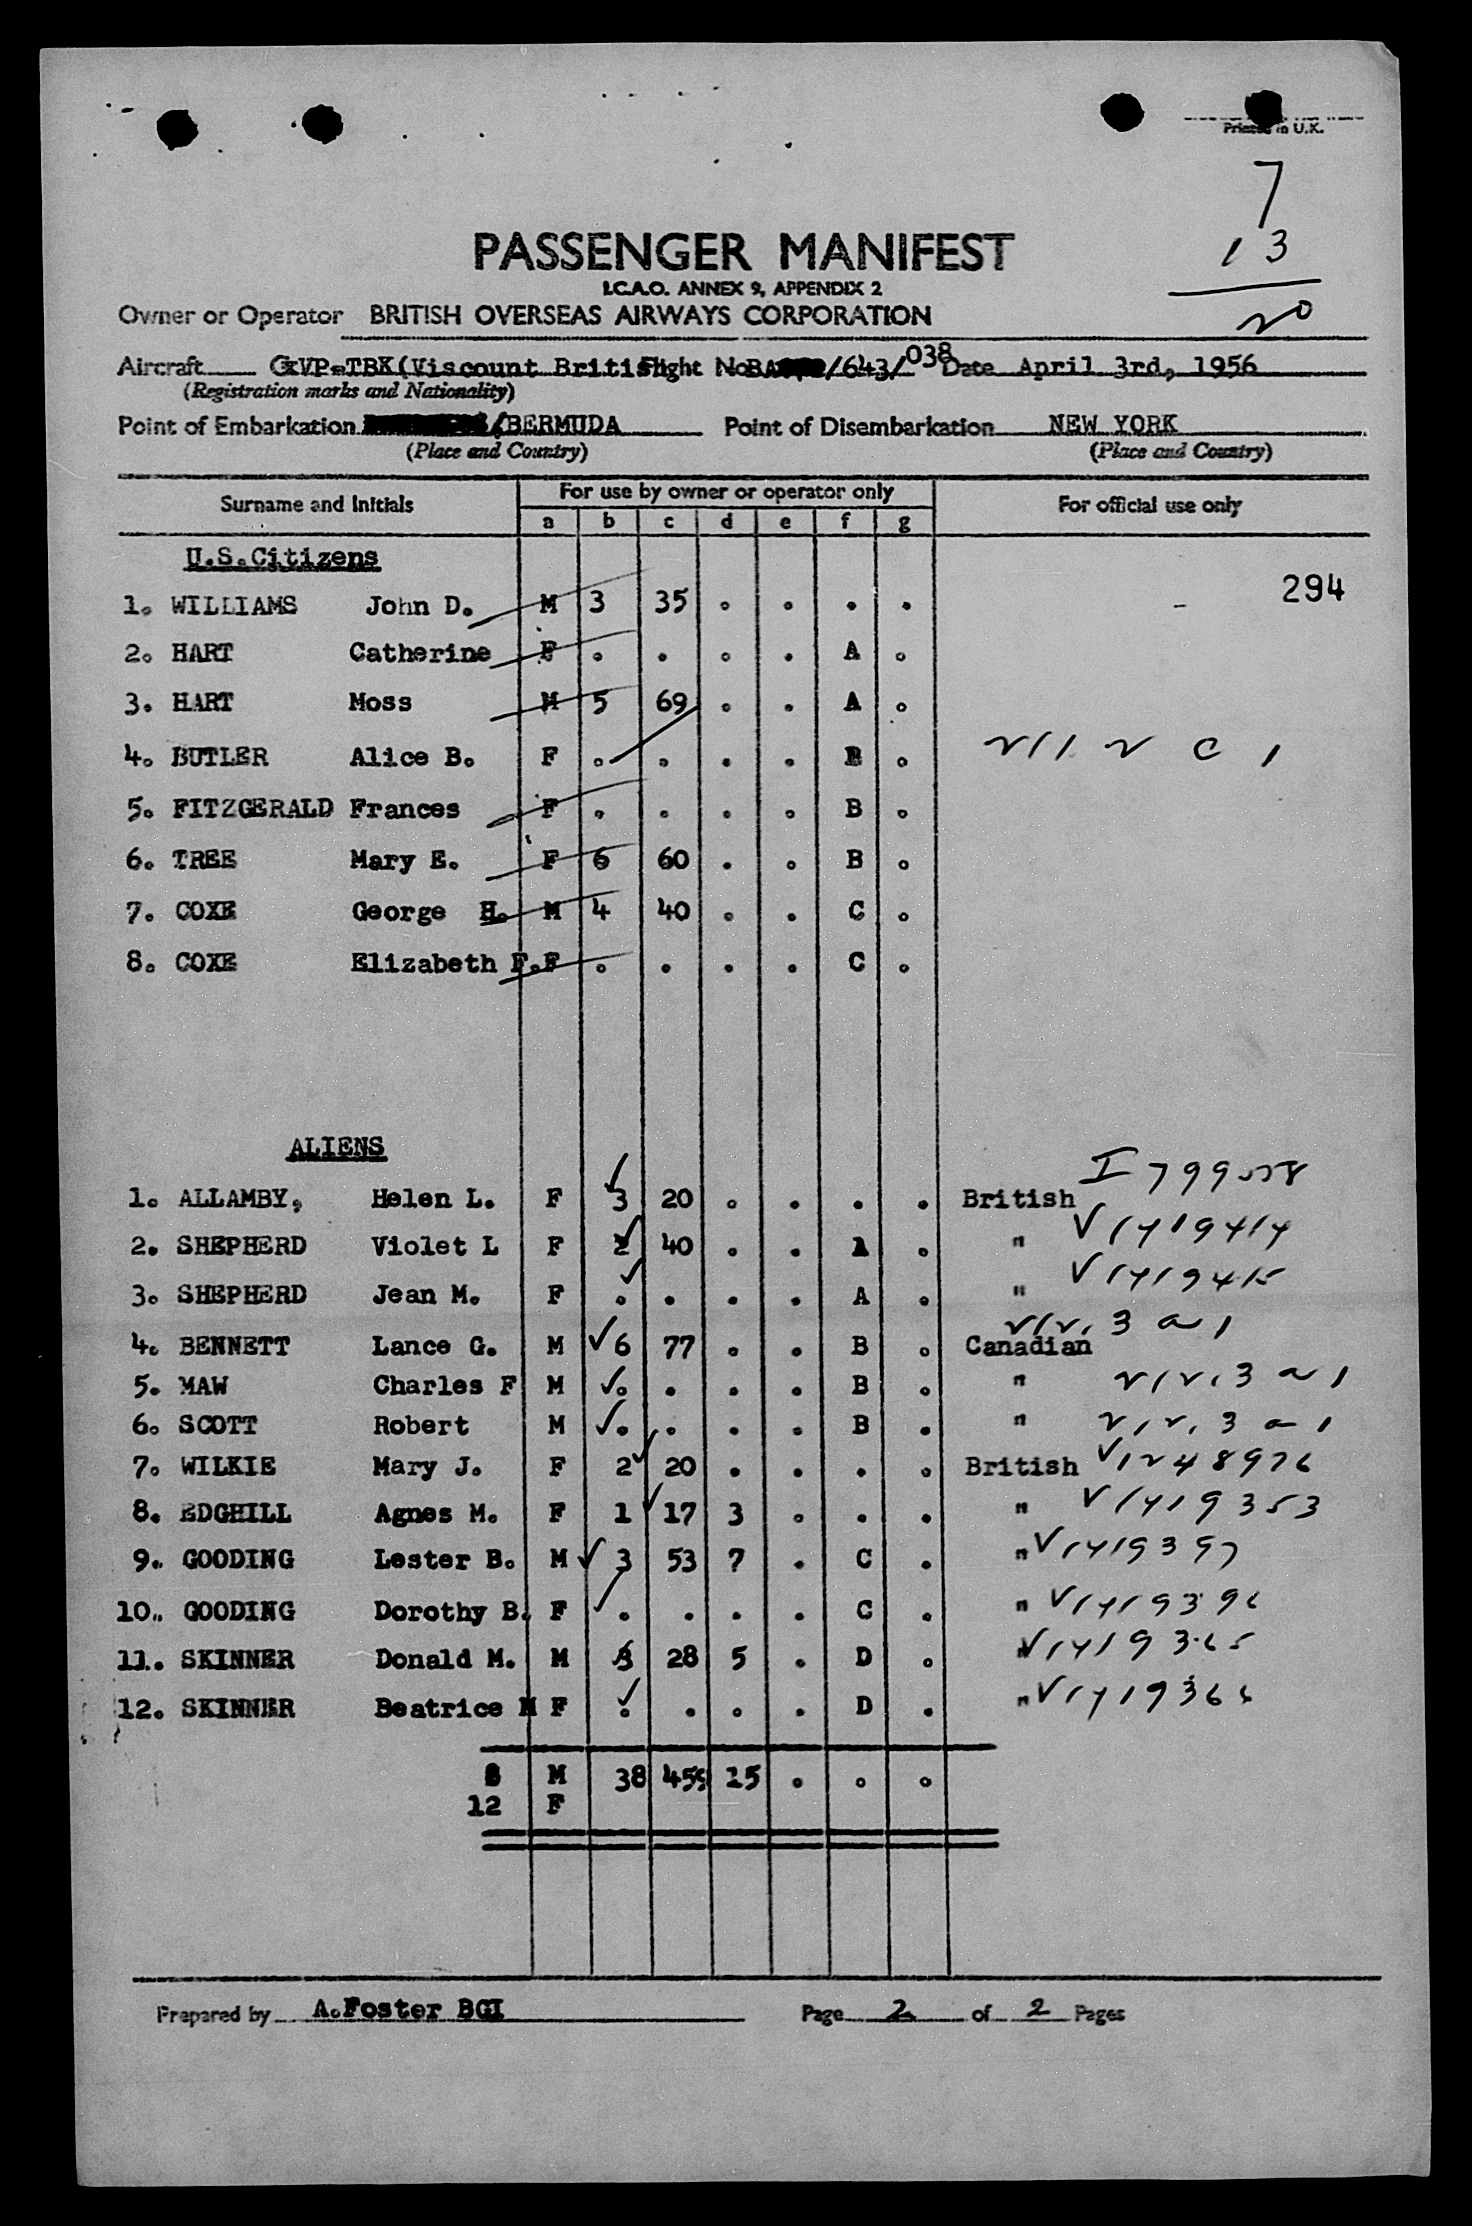 Printed in U.K.
7
13
20
PASSENGER MANIFEST
I.C.A.O. ANNEX 9, APPENDIX 2
Owner or Operator BRITISH OVERSEAS AIRWAYS CORPORATION
Aircraft VP-TBK(Viscount British Flight No BA /643/038 Date April 3rd, 1956
(Registration marks and Nationality)
Point of Embarkation /BERMUDA Point of Disembarkation NEW YORK
(Place and Country) (Place and Country)
Surname and Initials For use by owner or operator only For official use only
a b c d e f g
U.S.Citizens
294
1. WILLIAMS John D. M 3 35 . . . .
2. HART Catherine F . . . . A .
3. HART Moss M 5 69 . . A .
4. BUTLER Alice B. F . . . . B .
5. FITZGERALD Frances F . . . . B .
6. TREE Mary E. F 6 60 . . B .
7. COXE George H. M 4 40 . . C .
8. COXE Elizabeth F. F . . . . C .
ALIENS
1. ALLAMBY, Helen L. F 3 20 . . . . British
2. SHEPHERD Violet L F 2 40 . . A . " V1419414
3. SHEPHERD Jean M. F . . . . A . " V1419415
4. BENNETT Lance G. M 6 77 . . B . Canadian
5. MAW Charles F M . . . . B . "
6. SCOTT Robert M . . . . B . "
7. WILKIE Mary J. F 2 20 . . . . British V1248976
8. EDGHILL Agnes M. F 1 17 3 . . . " V1419353
9. GOODING Lester B. M 3 53 7 . C . " V1419397
10. GOODING Dorothy B. F . . . . C . " V1419396
11. SKINNER Donald M. M 3 28 5 . D . " V1419365
12. SKINNER Beatrice M F . . . . D . " V1419366
8 M 38 459 15 . . .
12 F
Prepared by A.Foster BGI Page 2 of 2 Pages